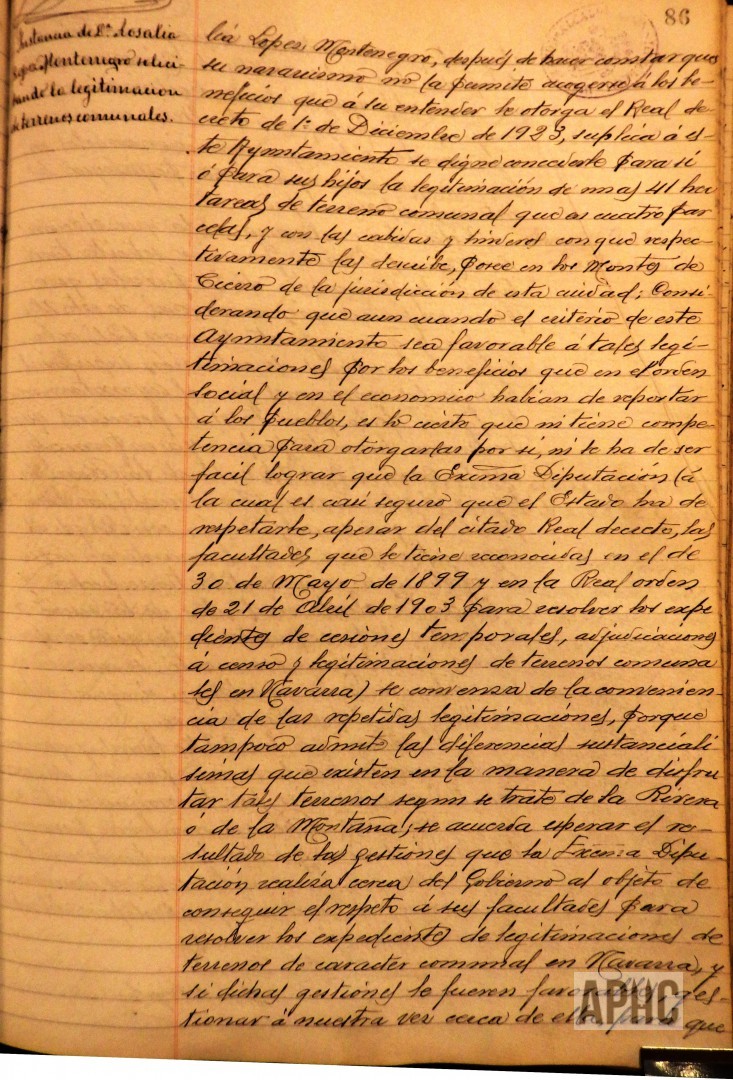 86
Instancia de Dª Rosalia
Lopez Montenegro solici-
tando la legitimacion
de terrenos comunales.
lia Lopez Montenegro, después de hacer constar que
su navarrismo no la permite acogerse á los be-
neficios que á su entender le otorga el Real de-
creto de 1º de Diciembre de 1923, suplica á es-
te Ayuntamiento se digne concederle para sí
ó para sus hijos la legitimación de unas 41 hec
tareas de terreno comunal que en cuatro par
celas, y con las cabidas y linderos con que respec-
tivamente las describe, posee en los Montes de
Cierzo de la jurisdicción de esta ciudad; Consi-
derando que aun cuando el criterio de este
Ayuntamiento sea favorable á tales legi-
timaciones por los beneficios que en el orden
social y en el economico habian de reportar
á los pueblos, es lo cierto que ni tiene compe-
tencia para otorgarlas por sí, ni le ha de ser
facil lograr que la Excma Diputación (á
la cual es casi seguro que el Estado ha de
respetarle, apesar del citado Real decreto, las
facultades que le tiene reconocidas en el de
30 de Mayo de 1899 y en la Real orden
de 21 de Abril de 1903 para resolver los expe
dientes de cesiones temporales, adjudicaciones
á censo y legitimaciones de terrenos comuna
les en Navarra) se convenza de la convenien-
cia de las repetidas legitimaciones, porque
tampoco admite las diferencias sustanciali
simas que existen en la manera de disfru
tar tales terrenos segun se trate de la Rivera
ó de la Montaña; se acuerda esperar el re-
sultado de las gestiones que la Excma Dipu-
tación realiza cerca del Gobierno al objeto de
conseguir el respeto á sus facultades para
resolver los expedientes de legitimaciones de
terrenos de caracter comunal en Navarra, y
si dichas gestiones le fueren ges-
tionar á nuestra vez cerca de ella para que
APHC